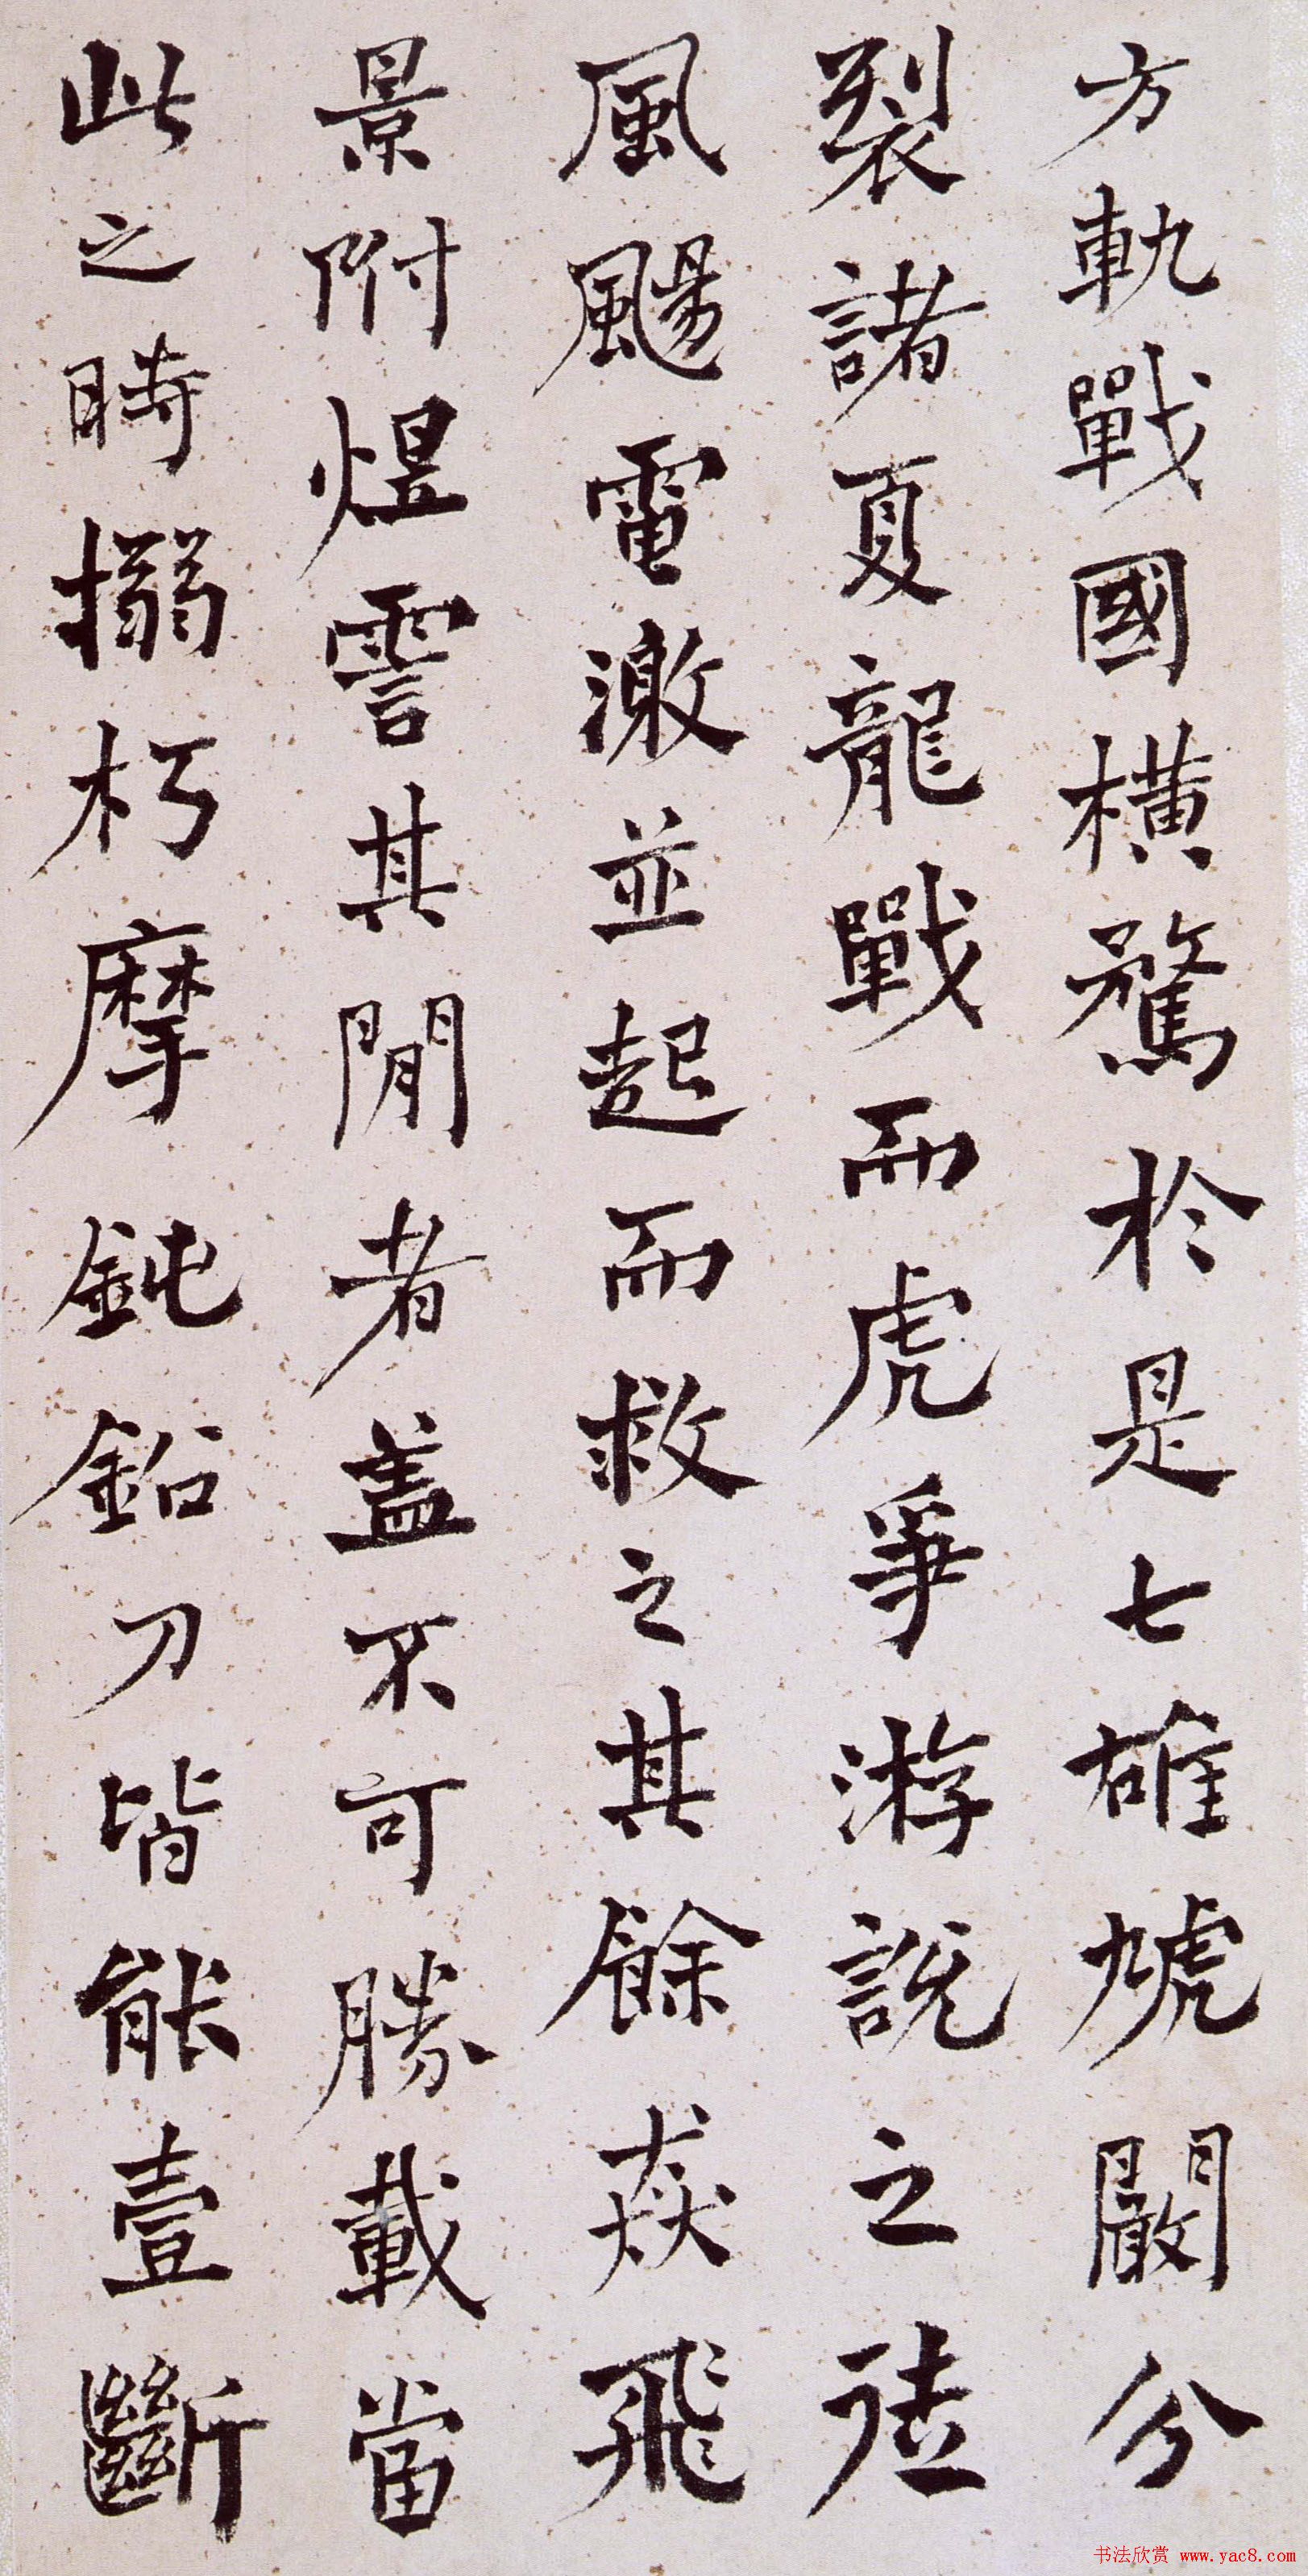 方軌戰國橫騖於是七雄虓闞分
裂諸夏龍戰而虎爭游說之徒
風颺電激並起而救之其餘猋飛
景附煜霅其閒者盖不可勝載當
此之時搦朽摩鈍鉛刀皆能壹斷
书法欣赏 www.yac8.com